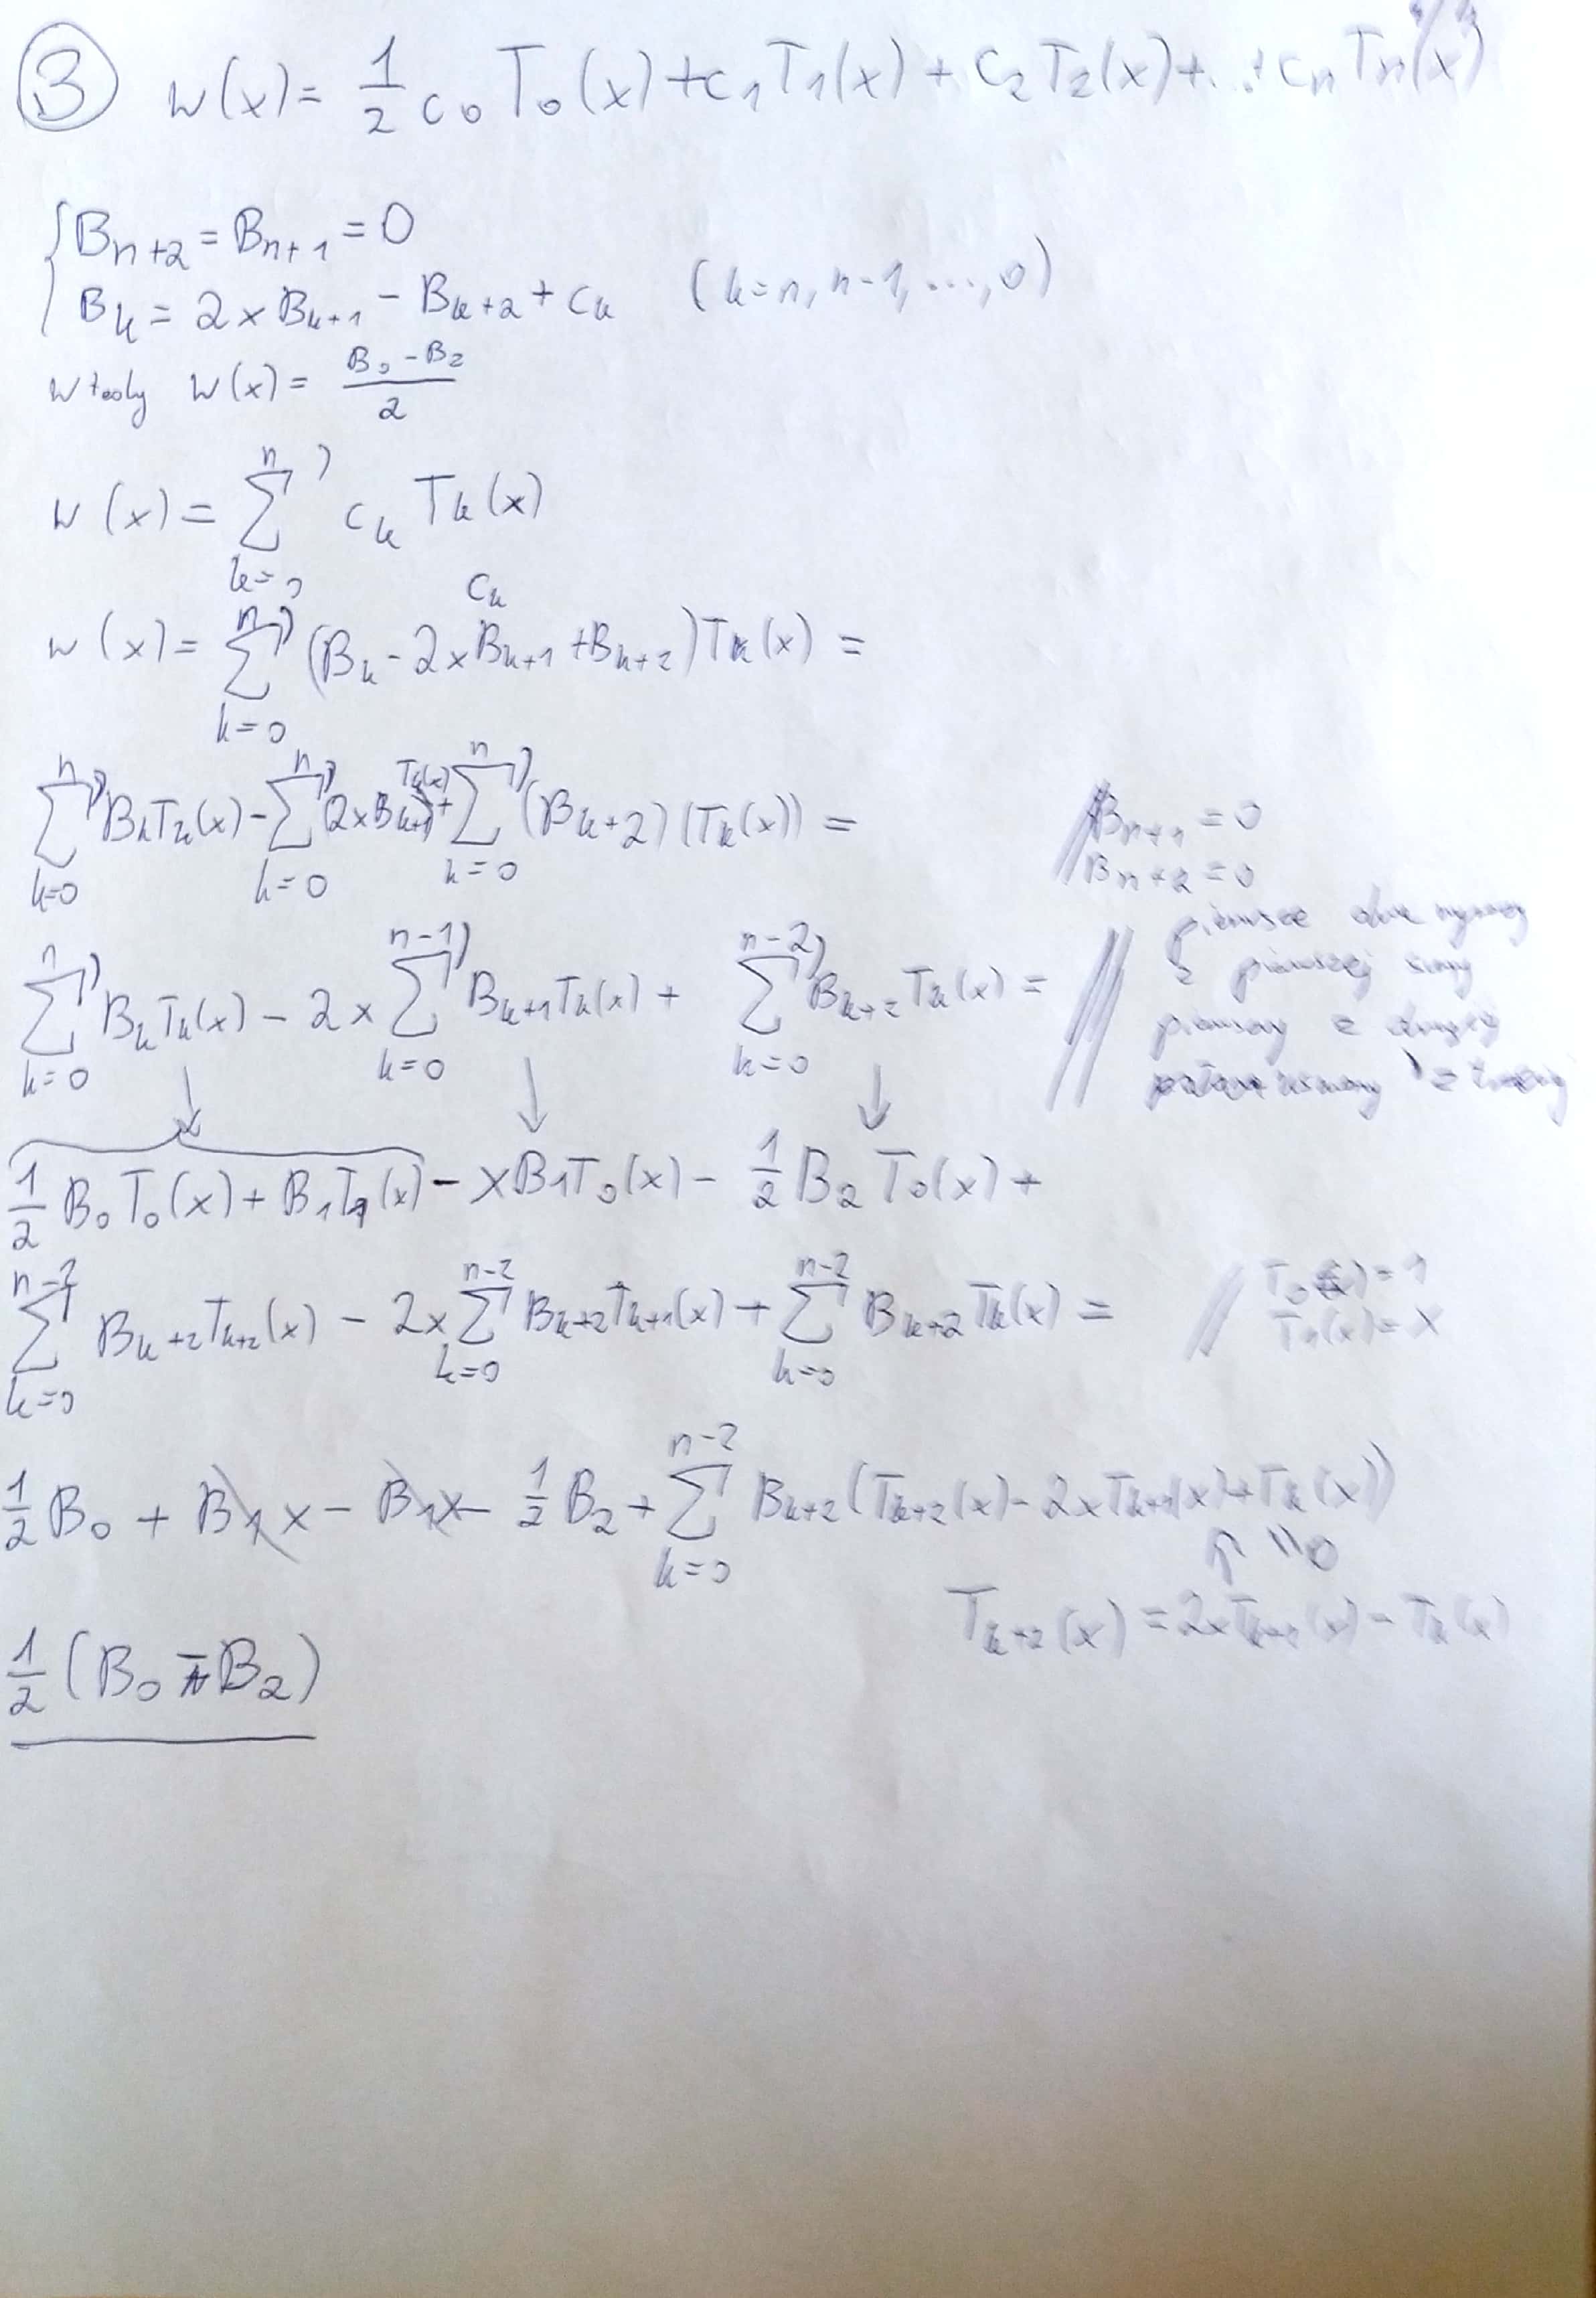 ③ w(x) = 1/2 c₀T₀(x) + c₁T₁(x) + c₂T₂(x) + ... + cₙTₙ(x)
{ Bₙ₊₂ = Bₙ₊₁ = 0
Bₖ = 2xBₖ₊₁ - Bₖ₊₂ + cₖ (k=n, n-1, ..., 0)
wtedy w(x) = (B₀ - B₂)/2
w(x) = ∑'ₖ₌₀ⁿ cₖ Tₖ(x)
cₖ
w(x) = ∑'ₖ₌₀ⁿ (Bₖ - 2xBₖ₊₁ + Bₖ₊₂)Tₖ(x) =
∑'ₖ₌₀ⁿ BₖTₖ(x) - ∑'ₖ₌₀ⁿ (2xBₖ₊₁)Tₖ(x) + ∑'ₖ₌₀ⁿ (Bₖ₊₂)(Tₖ(x)) =
// Bₙ₊₁ = 0
Bₙ₊₂ = 0
∑'ₖ₌₀ⁿ BₖTₖ(x) - 2x ∑'ₖ₌₀ⁿ⁻¹ Bₖ₊₁Tₖ(x) + ∑'ₖ₌₀ⁿ⁻² Bₖ₊₂Tₖ(x) =
// pierwsze dwa wyrazy
z pierwszej sumy
pierwszy z drugiej
z trzeciej
1/2 B₀T₀(x) + B₁T₁(x) - xB₁T₀(x) - 1/2 B₂T₀(x) +
∑ₖ₌₀ⁿ⁻² Bₖ₊₂Tₖ₊₂(x) - 2x ∑ₖ₌₀ⁿ⁻² Bₖ₊₂Tₖ₊₁(x) + ∑ₖ₌₀ⁿ⁻² Bₖ₊₂Tₖ(x) =
// T₀(x) = 1
T₁(x) = x
1/2 B₀ + B₁x - B₁x - 1/2 B₂ + ∑ₖ₌₀ⁿ⁻² Bₖ₊₂(Tₖ₊₂(x) - 2xTₖ₊₁(x) + Tₖ(x))
↑ || 0
Tₖ₊₂(x) = 2xTₖ₊₁(x) - Tₖ(x)
1/2 (B₀ - B₂)